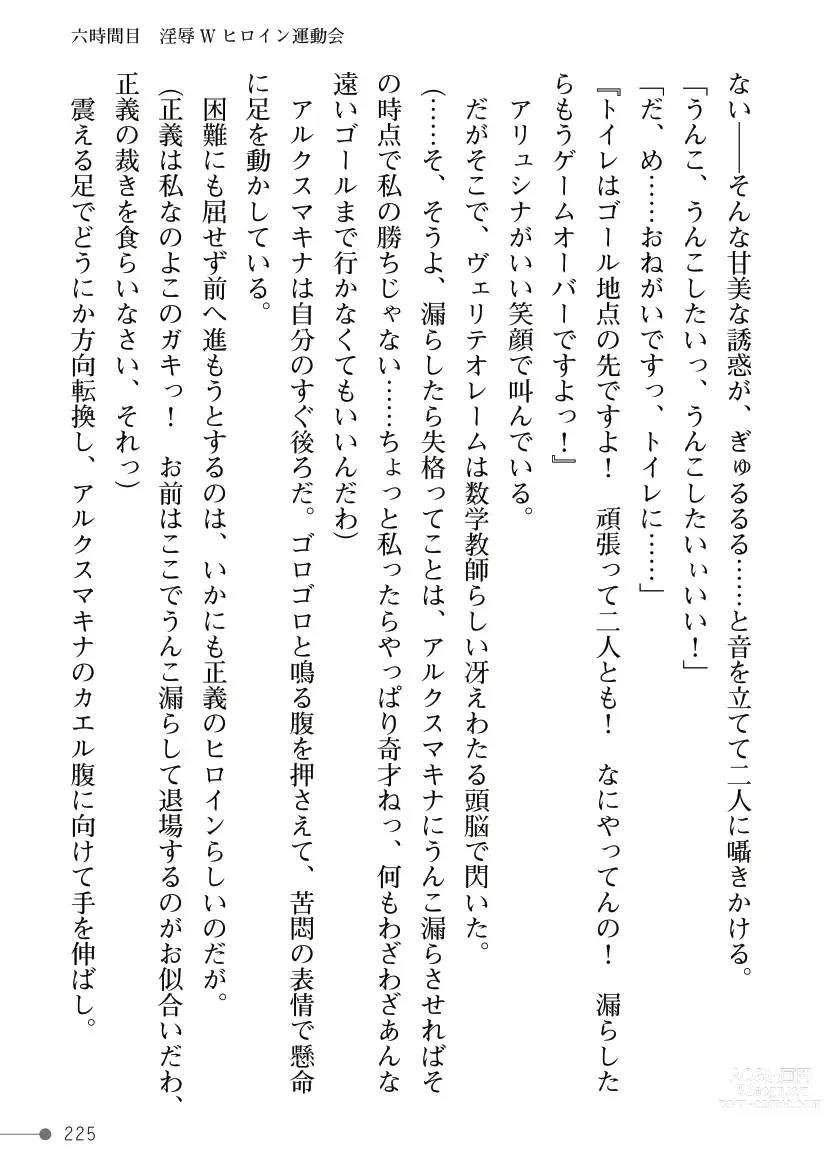 六時間目　淫辱Wヒロイン運動会
ない――そんな甘美な誘惑が、ぎゅるるる……と音を立てて二人に囁きかける。
「うんこ、うんこしたいっ、うんこしたいぃいい！」
「だ、め……おねがいですっ、トイレに……」
『トイレはゴール地点の先ですよ！　頑張って二人とも！　なにやってんの！　漏らした
らもうゲームオーバーですよっ！』
アリュシナがいい笑顔で叫んでいる。
だがそこで、ヴェリテオレームは数学教師らしい冴えわたる頭脳で閃いた。
(……そ、そうよ、漏らしたら失格ってことは、アルクスマキナにうんこ漏らさせればそ
の時点で私の勝ちじゃない……ちょっと私ったらやっぱり奇才ねっ、何もわざわざあんな
遠いゴールまで行かなくてもいいんだわ)
アルクスマキナは自分のすぐ後ろだ。ゴロゴロと鳴る腹を押さえて、苦悶の表情で懸命
に足を動かしている。
困難にも屈せず前へ進もうとするのは、いかにも正義のヒロインらしいのだが。
(正義は私なのよこのガキっ！　お前はここでうんこ漏らして退場するのがお似合いだわ、
正義の裁きを食らいなさい、それっ)
震える足でどうにか方向転換し、アルクスマキナのカエル腹に向けて手を伸ばし。
225